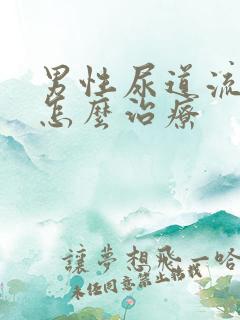 男性尿道流
怎麼治療
讓夢想飛一哈
未經同意禁止轉載